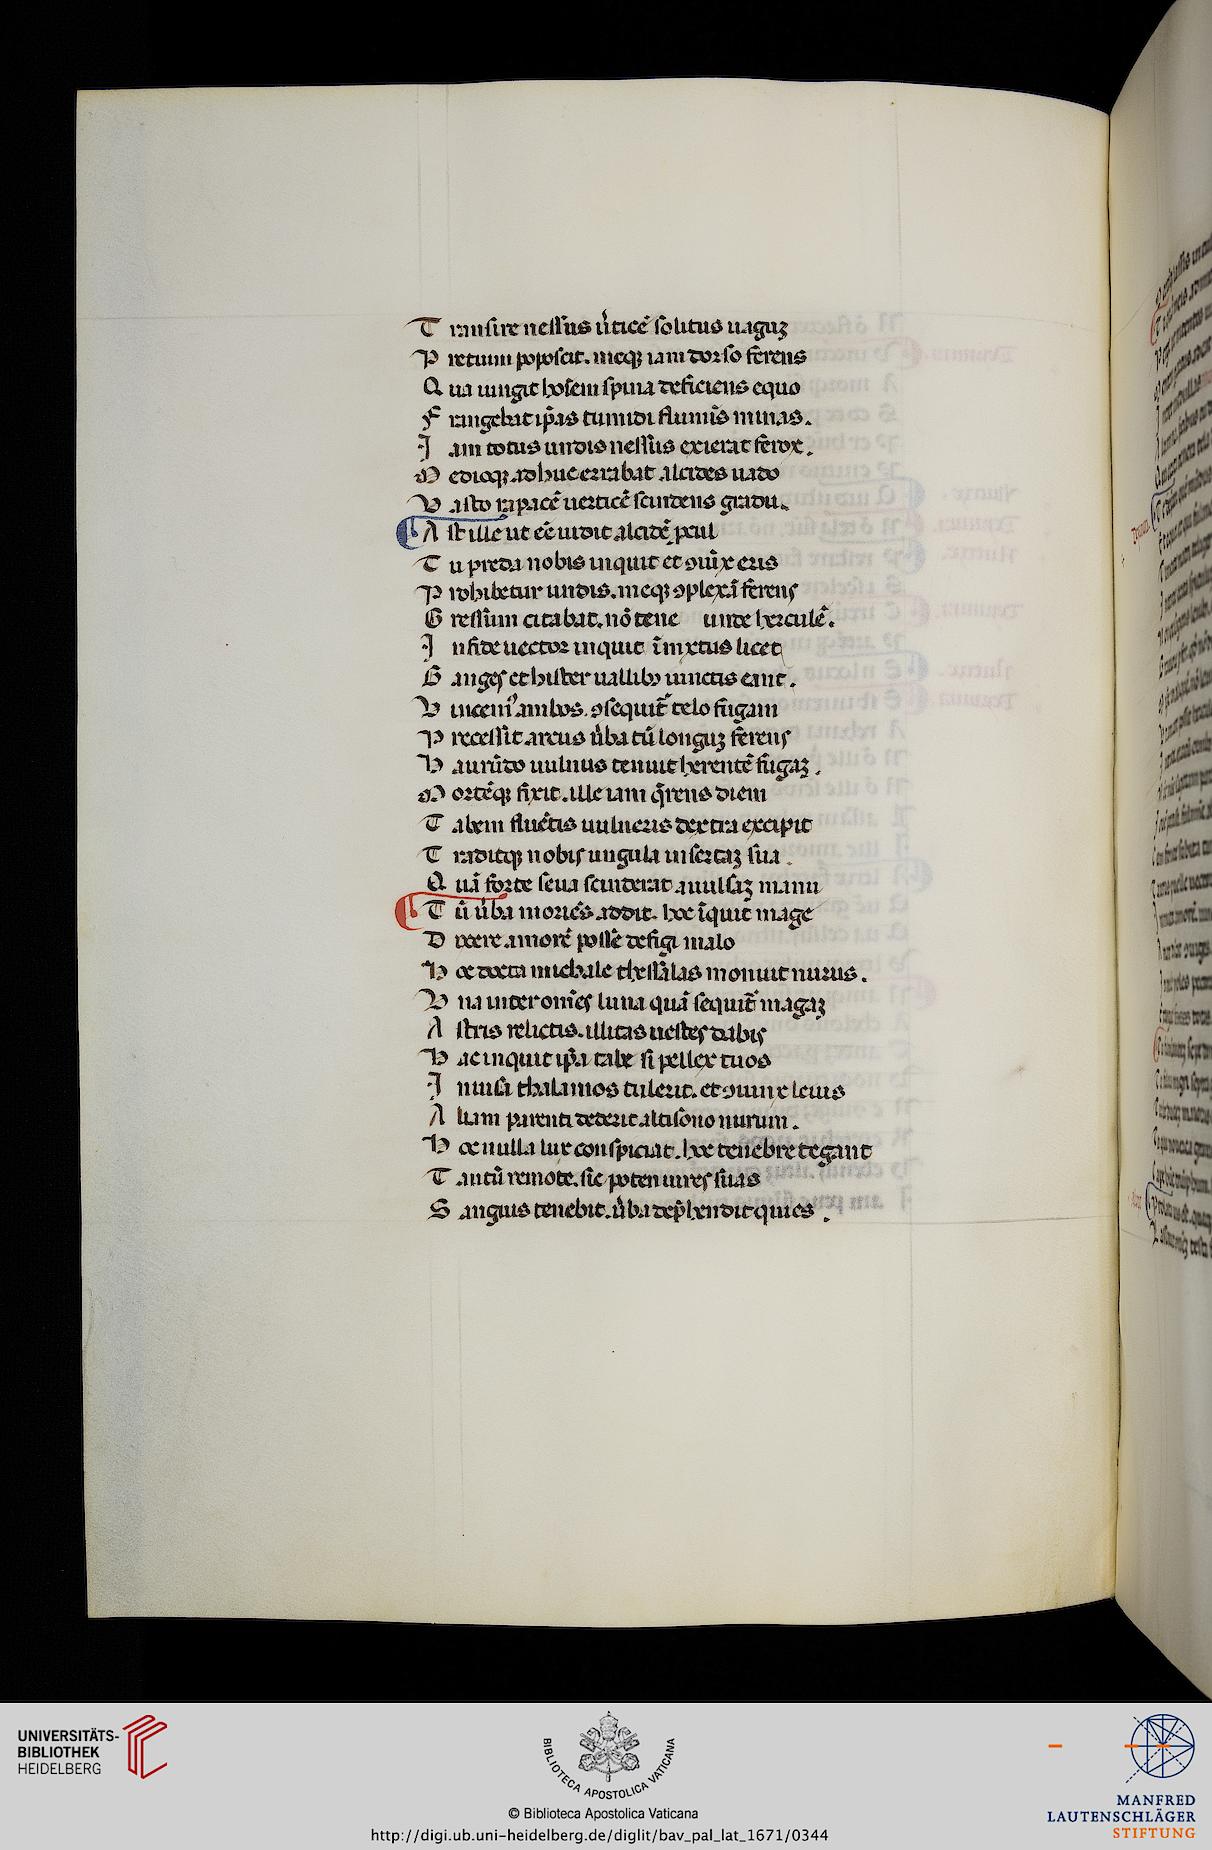 T ransire nessus ũticẽ solitus uaguȝ
P retium poposcit. meqȝ iam dorso ferens
Q ua iungit hosem spina deficiens equo
F rangebat ip̃as tumidi fluminis minas.
J am totus undis nessus exierat ferox.
M edioqȝ adhuc errabat alcides uado
V asto rapacẽ uerticẽ scindens gradu.
A st ille ut eẽ uidit alcidẽ pcul
T u preda nobis inquit et ꝯiũx eris
P rohibetur undis. meqȝ ꝯplexã ferens
G ressum citabat. nõ tene unde herculẽ.
J nfide uector inquit ĩmixtus licet
G anges et hister uallibȝ iunctis eant.
V incemꝰ ambos. ꝯsequit̃ telo fugam
P recessit arcus ũba tũ longuȝ ferens
H arundo uulnus tenuit herentẽ fugaȝ.
M ortẽqȝ fixit. ille iam q̃rens diem
T abem fluẽtis uulneris dextra excipit
T raditqȝ nobis ungula insertaȝ sua
Q uã forte seua sciderat auulsaȝ manu
T ũ ũba moriẽs addit. hoc ĩquit mage
D ixere amorẽ posse defigi malo
H oc docta michale thessalas monuit nurus.
V na inter om̃es luna quã sequit̃ magaȝ
A stris relictis. illitas uestes dabis
H ac inquit ip̃a tabe si pellex tuos
J nuisa thalamos tulerit. et ꝯiunx leuis
A liam parenti dederit altisono nurum.
H oc nulla lux conspiciat. hoc tenebre tegant
T antũ remote. sic poten uires suas
S anguis tenebit. ũba dep̃hendit quies.
UNIVERSITÄTS-
BIBLIOTHEK
HEIDELBERG
BIBLIOTECA APOSTOLICA VATICANA
© Biblioteca Apostolica Vaticana
http://digi.ub.uni-heidelberg.de/diglit/bav_pal_lat_1671/0344
MANFRED
LAUTENSCHLÄGER
STIFTUNG